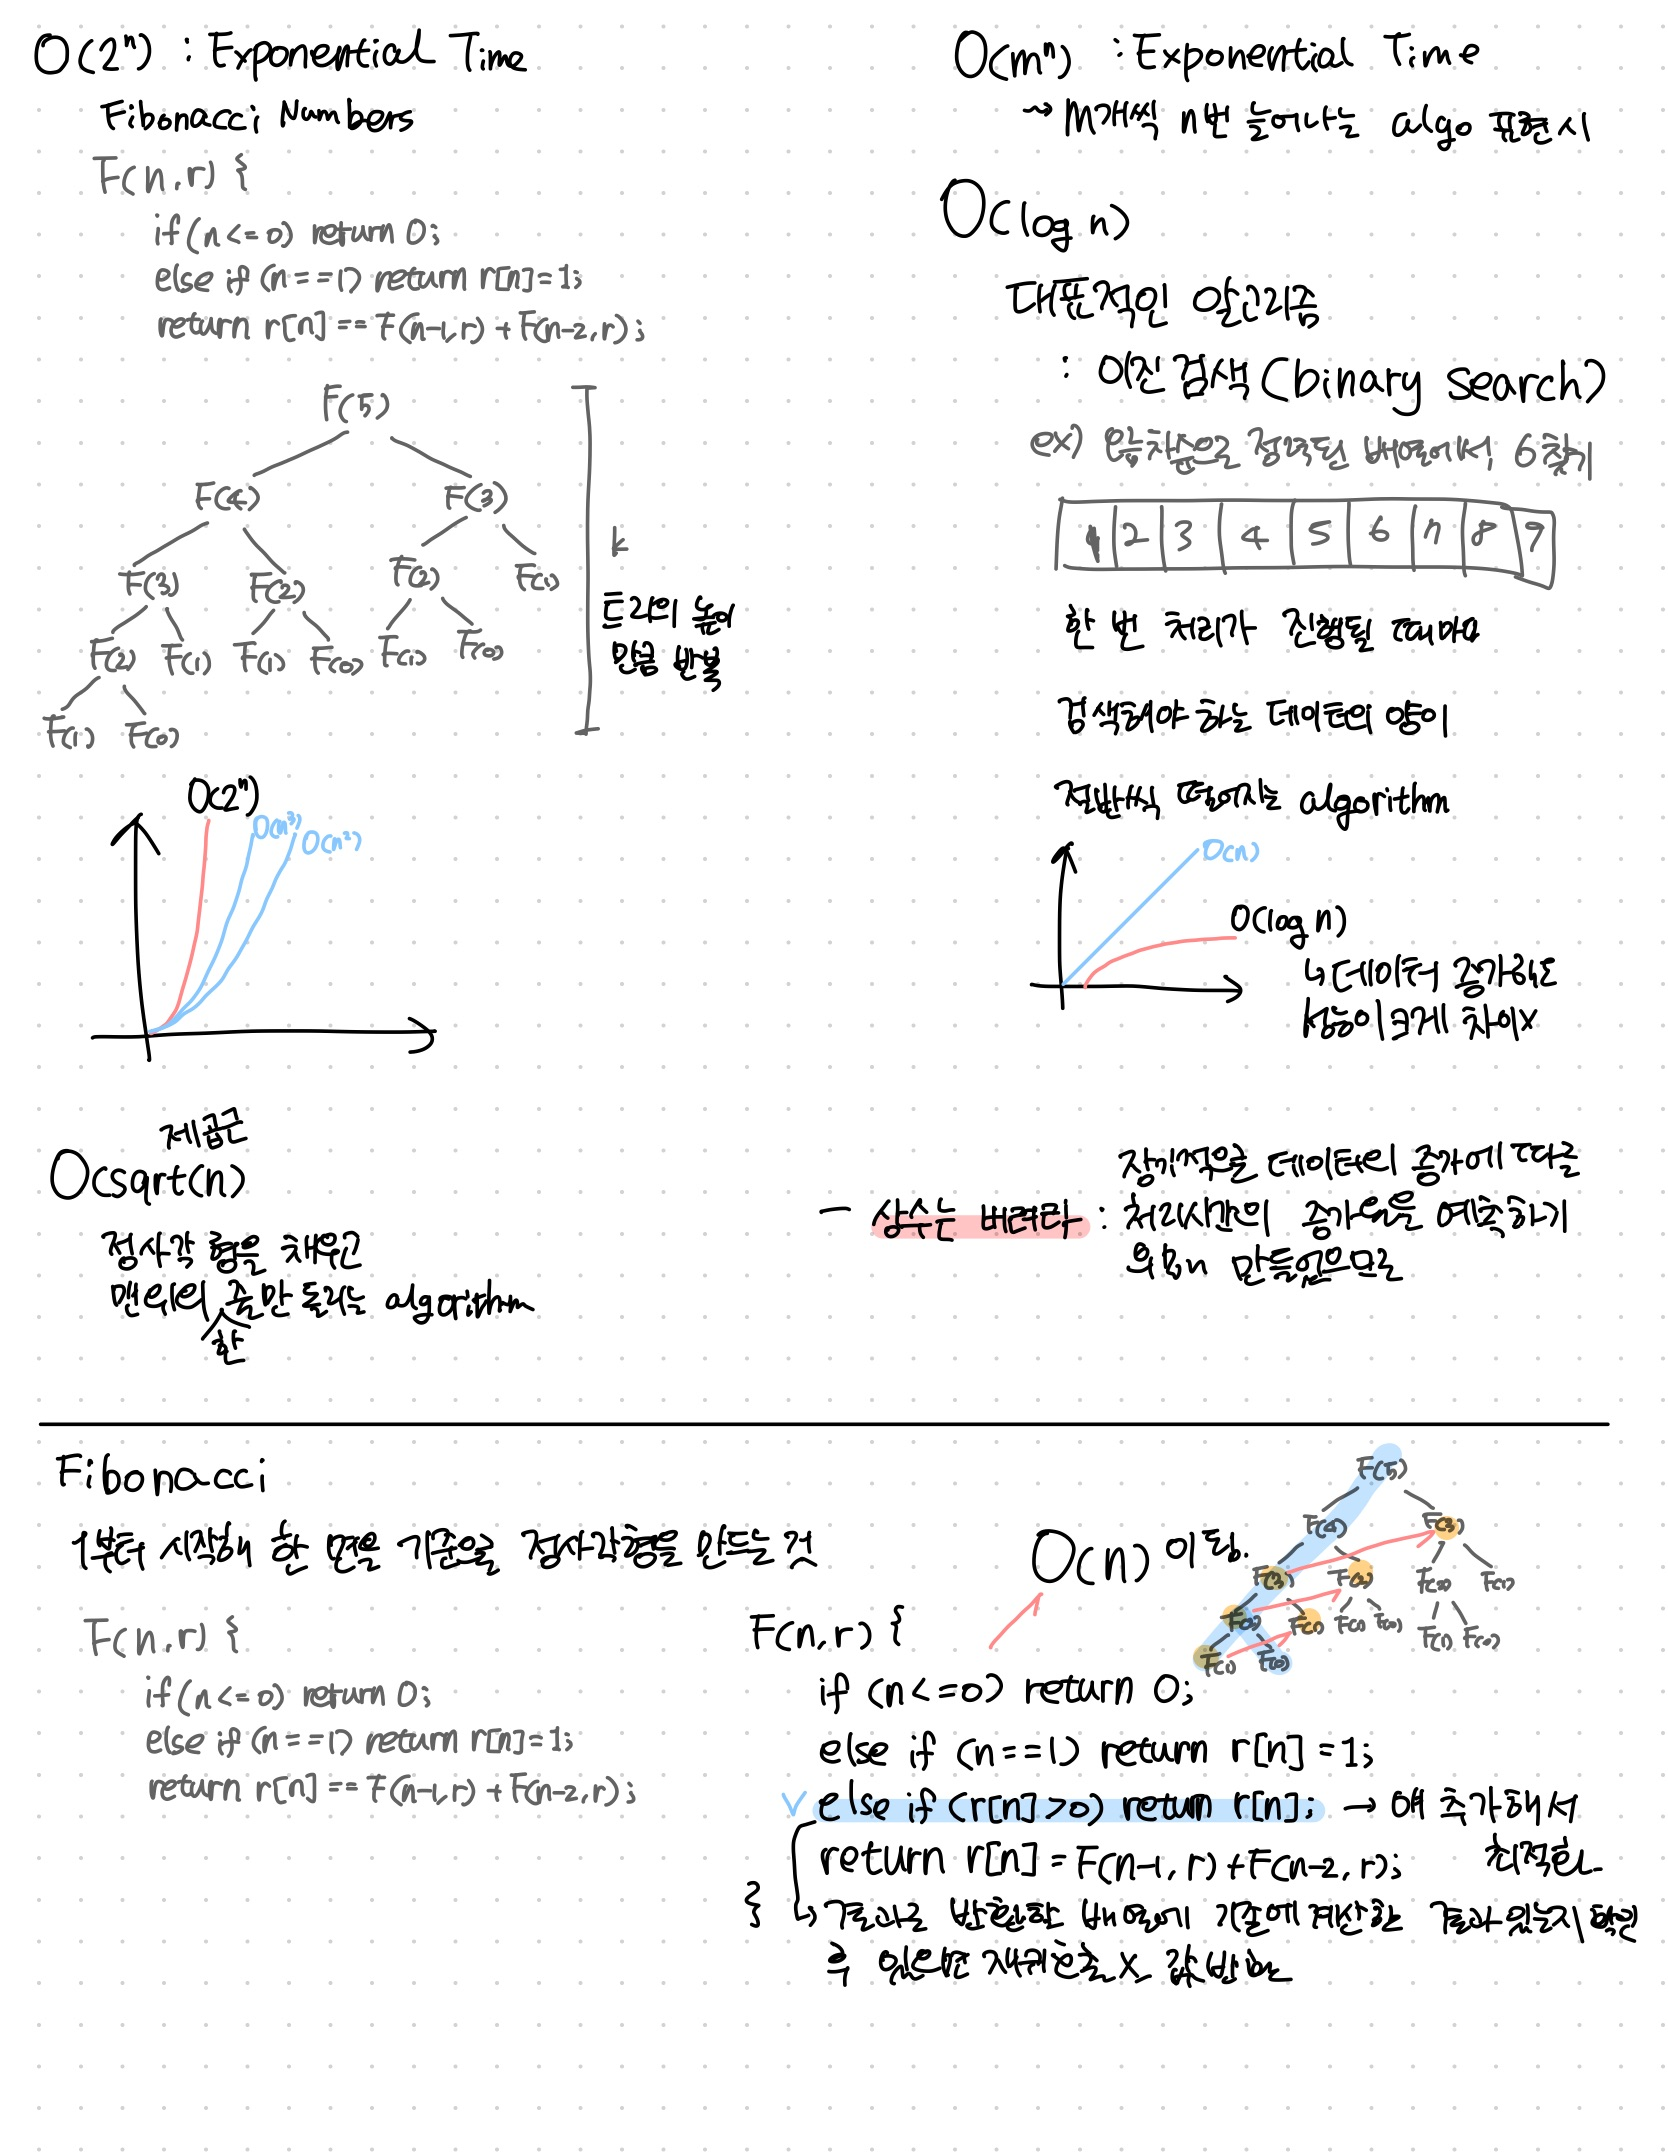 O(2ⁿ) : Exponential Time
Fibonacci Numbers
F(n,r) {
if(n<=0) return 0;
else if (n==1) return r[n]=1;
return r[n] == F(n-1,r) + F(n-2,r);
F(5)
F(4) F(3)
F(3) F(2) F(2) F(1)
F(2) F(1) F(1) F(0) F(1) F(0)
F(1) F(0)
k
트리의 높이
만큼 반복
O(2ⁿ)
O(n³)
O(n²)
제곱근
O(sqrt(n)
정사각형을 채우고
맨 위의 한 줄만 돌리는 algorithm
O(mⁿ) : Exponential Time
→ m개씩 n번 늘어나는 algo 표현시
O(log n)
대표적인 알고리즘
: 이진검색(binary search)
ex) 오름차순으로 정렬된 배열에서, 6찾기
1 2 3 4 5 6 7 8 9
한 번 처리가 진행될 때마다
검색해야 하는 데이터의 양이
절반씩 떨어지는 algorithm
O(n)
O(log n)
↳ 데이터 증가해도
성능이 크게 차이x
— 상수는 버려라 : 장기적으로 데이터의 증가에 따른
처리시간의 증가율을 예측하기
위해 만들었으므로
Fibonacci
1부터 시작해 한 면을 기준으로 정사각형을 만드는 것
F(n,r) {
if(n<=0) return 0;
else if (n==1) return r[n]=1;
return r[n] == F(n-1,r) + F(n-2,r);
O(n) 이 됨.
F(5)
F(4) F(3)
F(3) F(2) F(2) F(1)
F(2) F(1) F(1) F(0) F(1) F(0)
F(1) F(0)
F(n,r) {
if (n<=0) return 0;
else if (n==1) return r[n]=1;
else if (r[n]>0) return r[n]; → 얘 추가해서
최적화
return r[n] = F(n-1, r)+F(n-2, r);
}
↳ 결과로 반환할 배열에 기존에 계산한 결과 있는지 확인
후 있으면 재귀호출 X 값 반환